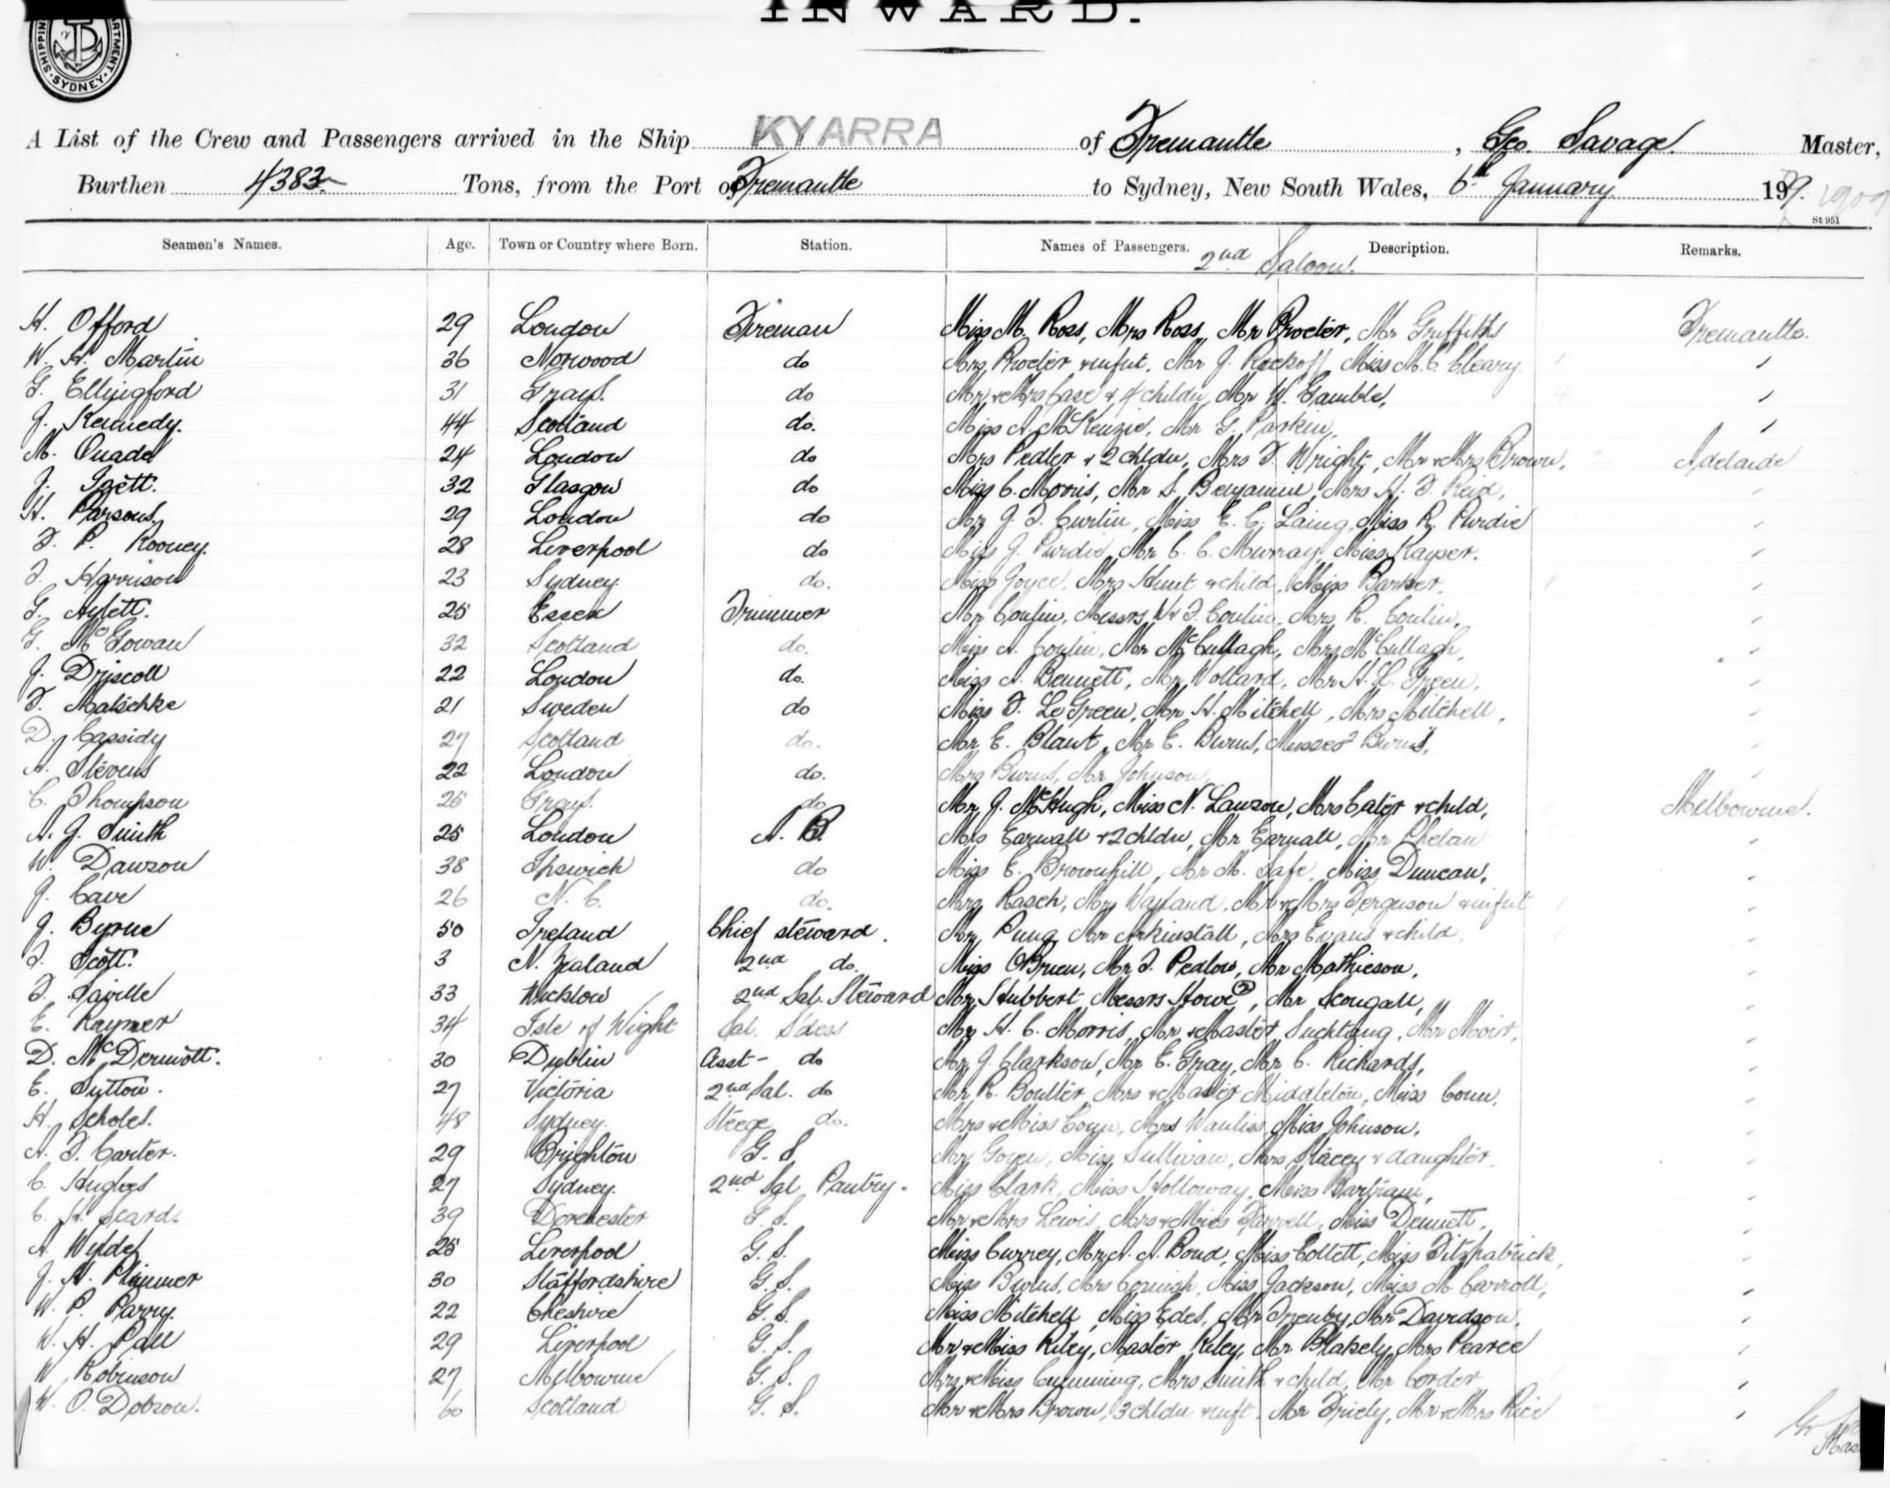 INWARD.
SHIPPIN ARTMENT SYDNEY
A List of the Crew and Passengers arrived in the Ship KYARRA of Fremantle, Geo. Savage. Master,
Burthen 4383 Tons, from the Port of Fremantle to Sydney, New South Wales, 6th January 199. 1909
St 951
Seamen's Names. Age. Town or Country where Born. Station. Names of Passengers. Description. Remarks.
2nd Saloon.
H. Offord 29 London Fireman Miss M. Ross, Mrs Ross, Mr Procter, Mr Griffiths Fremantle.
W. H. Martin 36 Norwood do Mrs Procter & infnt, Mr J. Miss M. C. Cleary
G. Ellingford 31 Grays. do Mr & Mrs Case & 4 childn, Mr W. Gamble,
J. Kennedy. 44 Scotland do. Miss A. McKenzie, Mr G. Parkin,
M. Quade 24 London do Mrs Pedler & 2 chldn, Mrs F. Wright, Mr & Mrs Brown, Adelaide
J. Izett. 32 Glasgow do Miss C. Morris, Mr S. Benjamin, Mrs H. F. Reid,
H. Parsons. 29 London do Mr J. F. Curtin, Miss E. C. Laing, Miss R. Purdie
F. P. Rooney. 28 Liverpool do Miss J. Purdie, Mr C. C. Murray, Miss Kayser.
F. Harrison 23 Sydney. do. Miss Joyce, Mrs Hunt & child, Miss Barker,
G. Aylett. 25 Essex Trimmer Mr Conlin, Messrs F. Conlin, Mrs R. Conlin,
G. McGowan 32 Scotland do. Miss A. Conlin, Mr McCullagh, Mrs McCullagh,
J. Driscoll 22 London do. Miss A. Bennett, Mr Mr H. L. Green,
F. Matschke 21 Sweden do Miss F. Le Green, Mr H. Mitchell, Mrs Mitchell,
D. Cassidy 27 Scotland do. Mr E. Blant, Mr E. Burns, Misses 2 Burns,
A. Stevens 22 London do. Mrs Burns, Mr Johnson,
C. Thompson 25 Grays. do Mr J. McHugh, Miss N. Lawson, Mrs Cater & child, Melbourne.
A. J. Smith 25 London A. B. Mrs Earnall & 2 chldn, Mr Earnall, Mr Phelan
W. Dawson 38 Ipswich do Miss E. Brownhill, Mr M. Safe, Miss Duncan,
J. Cave 26 N. C. do. Mrs Rasch, Mrs Wayland, Mr & Mrs Ferguson & infnt
J. Byrne 50 Ireland Chief steward. Mr Pung Mr Arkinstall, Mrs Evans & child,
F. Scott. 3 N. Zealand 2nd do. Miss OBrien, Mr F. Pedlow, Mr Mathieson,
F. Saville 33 Wicklow 2nd Sal. Steward Mrs Hubbert Messrs Howe 2, Mr Scougall,
E. Raymer 34 Isle of Wight Sal. S'dess Mr H. C. Morris, Mr & Master Suchtang, Mr Moir,
D. McDermott. 30 Dublin Asst- do Mr J. Clarkson, Mr E. Gray, Mr C. Rickards,
E. Sutton. 27 Victoria 2nd Sal. do Mr R. Boulter, Mrs & Master Middleton, Miss Conn.
H. Scholes. 48 Sydney. Steege do. Mrs & Miss Coyn, Mrs Wauliss, Miss Johnson,
A. F. Carter. 29 Brighton G. S. Mr Miss Sullivan, Mrs Stacey & daughter,
C. Hughes 27 Sydney. 2nd Sal Pantry. Miss Clark, Miss Holloway, Miss Bartram,
C. H. Scard. 39 Dorchester G. S. Mr & Mrs Lewis, Mrs & Miss Farrell, Miss Dennett,
A. Wylde 25 Liverpool G. S. Miss Currey, Mr A. A. Bond, Miss Collett, Miss Fitzpatrick,
J. H. Plimmer 30 Staffordshire G. S. Miss Burns, Mrs Cornish, Miss Jackson, Miss M. Carroll,
W. P. Parry. 22 Cheshire G. S. Miss Mitchell, Miss Edel, Mr Mr Davidson.
W. H. Pall 29 Liverpool G. S. Mr & Miss Riley, Master Riley, Mr Blakely, Mrs Pearce
W Robinson 27 Melbourne G. S. Mrs & Miss Cumming, Mrs Smith & child, Mr Corder
W. O. Dobson. 60 Scotland G. S. Mr & Mrs Brown, 3 chldn & inft. Mr Friely, Mr & Mrs Rice
Mas